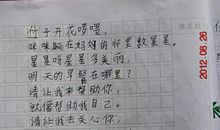 竹子开花啰喂,
咪咪躺在妈妈的怀里数星星,
星星呀星星多美丽,
明天的早餐在哪里?
请让我来帮助你,
就像帮助我自己。
请让我去关心你,
2012.08.26